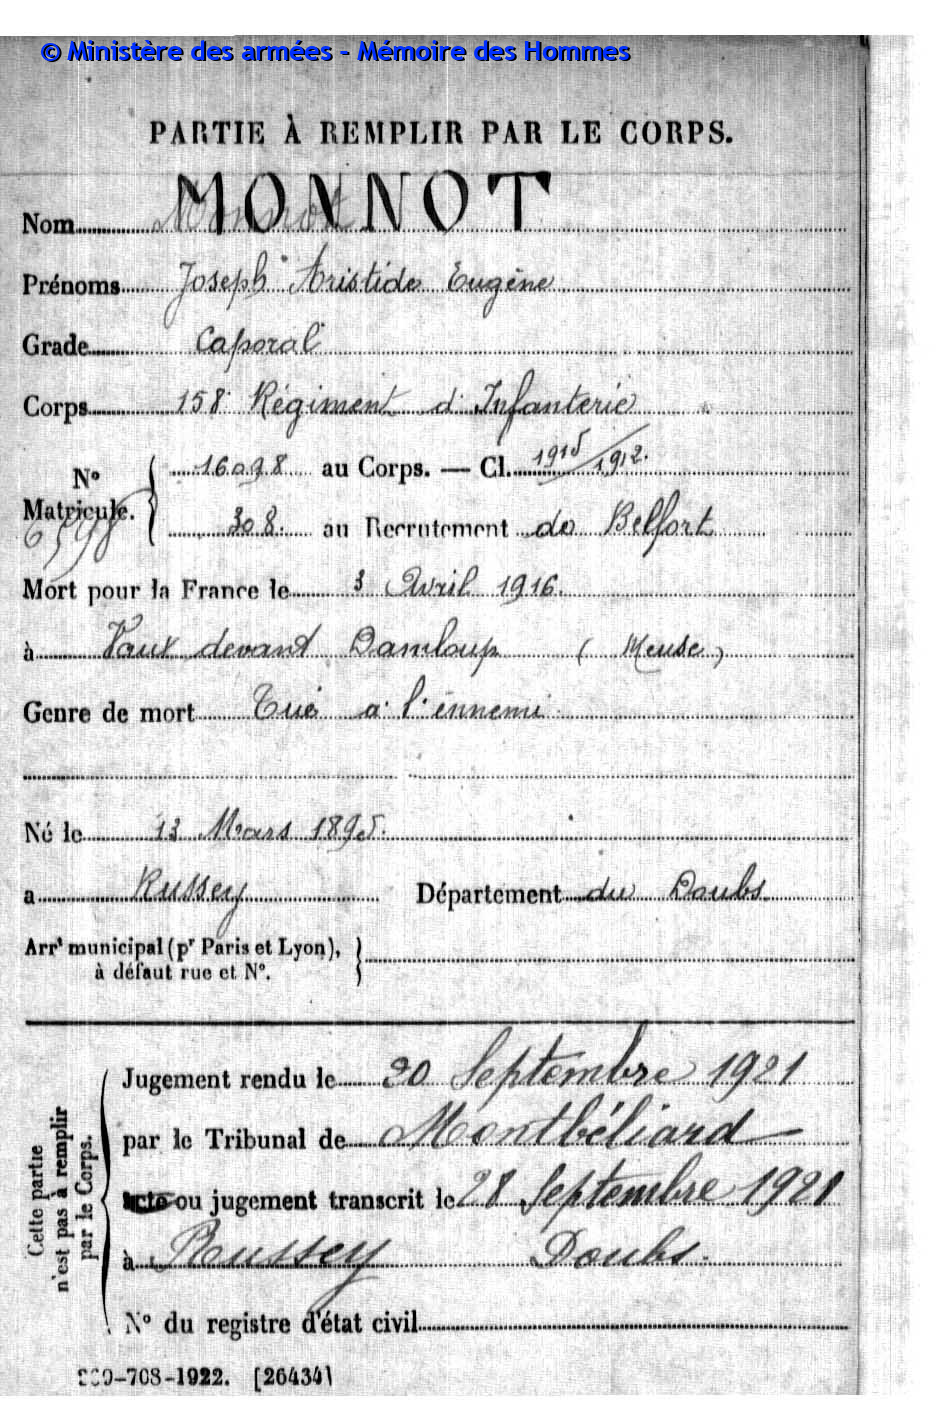 © Ministère des armées - Mémoire des Hommes
PARTIE À REMPLIR PAR LE CORPS.
Nom MONNOT
Prénoms Joseph Aristide Eugène
Grade Caporal
Corps 158 Régiment d'Infanterie
16098 au Corps. — Cl. 1915/1912.
N°
Matricule.
308. au Recrutement de Belfort
6598
Mort pour la France le 3 Avril 1916.
à Vaux devant Damloup (Meuse)
Genre de mort Tué a l'ennemi
Né le 13 Mars 1895.
a Russey Département du Doubs
Arrt municipal (pr Paris et Lyon),
à défaut rue et N°.
Cette partie
n'est pas à remplir
par le Corps.
Jugement rendu le 20 Septembre 1921
par le Tribunal de Montbéliard
acte ou jugement transcrit le 28 Septembre 1921
à Russey Doubs.
N° du registre d'état civil
-708-1922. [26434]